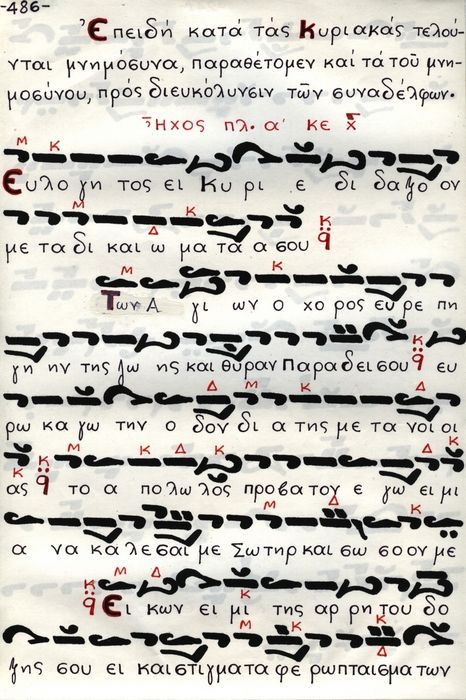 -486-
Ἐπειδή κατά τάς Κυριακάς τελού-
νται μνημόσυνα, παραθέτομεν καί τά τοῦ μνη-
μοσύνου, πρός διευκόλυνσιν τῶν συναδέλφων.
Ἦχος πλ. α' κε
Μ Κ
Ευ λο γη τος ει Κυ ρι ε δι δα ξο ον
Μ Δ Κ
με τα δι και ω μα τα α σου
Μ Κ
Των Α γι ων ο χο ρος ευ ρε πη
γη ην της ζω ης και θυ ραν Πα ρα δει σου ευ
Δ Μ Κ Δ
ρω κα γω την ο δον δι α της με τα νοι οι
Κ Κ Μ Κ Δ Κ Δ Κ
ας το α πο λω λος προ βα τον ε γω ει μι
Μ Δ Κ
α να κα λε σαι με Σω τηρ και σω σο ον με
Κ Μ Δ Κ
Ει κων ει μι της αρ ρη του δο
Μ Κ Κ Δ
ξης σου ει και στιγ μα τα φε ρω πται σμα των